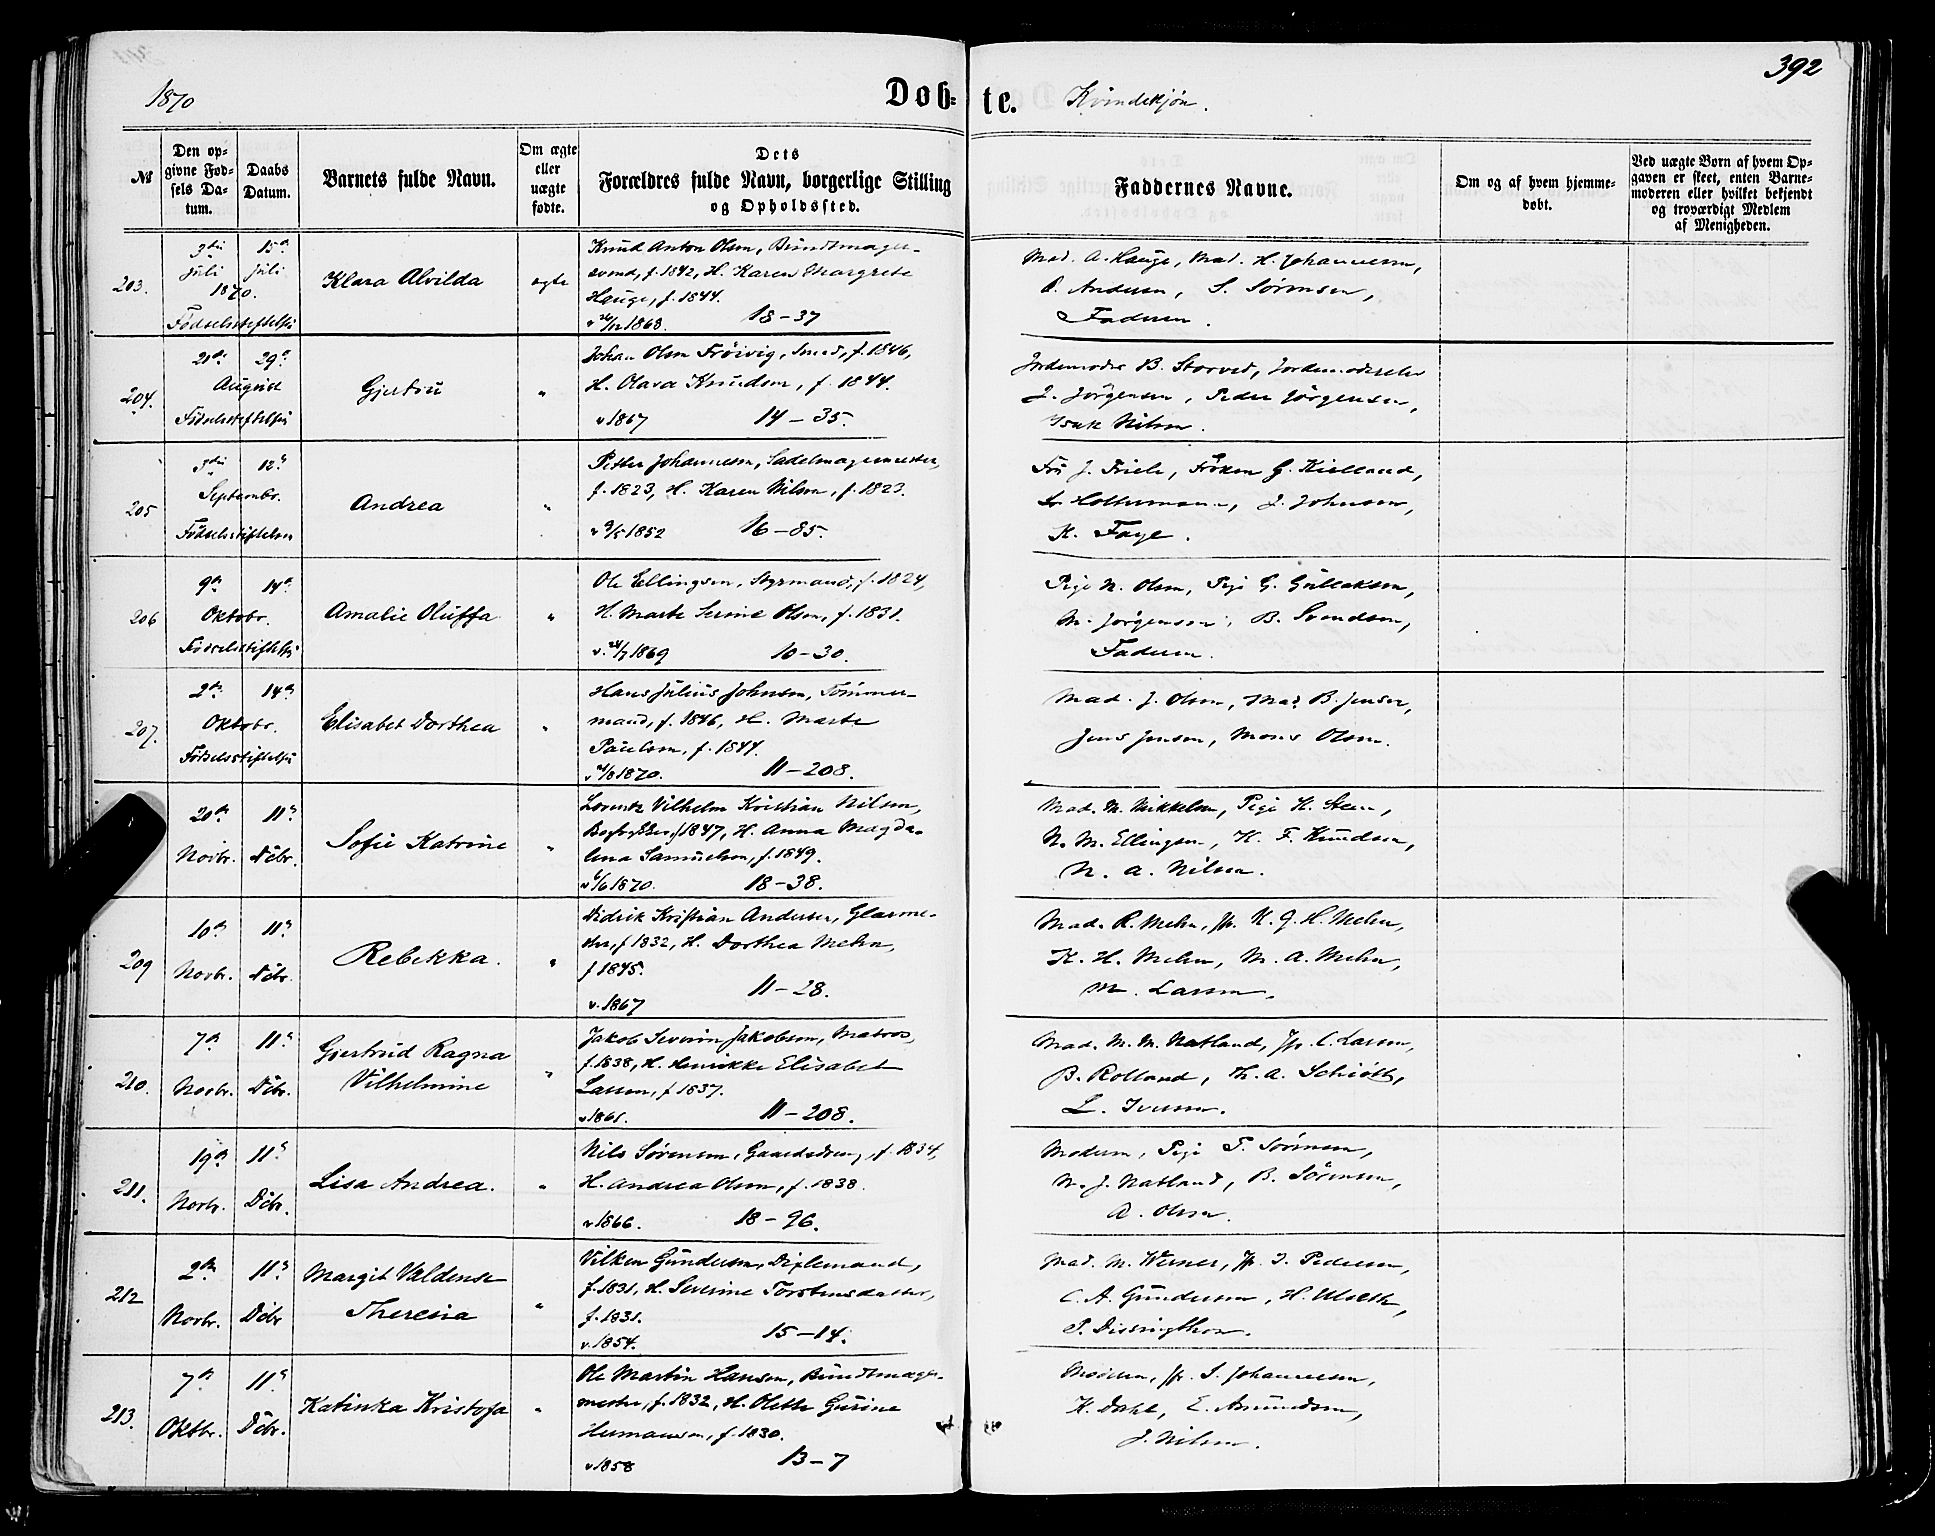 392
1870
Døb-te. Kvindekjøn.
№
Den opgivne Fødsels Datum.
Daabs Datum.
Barnets fulde Navn.
Om ægte eller uægte fødte.
Dets
Forældres fulde Navn, borgerlige Stilling
og Opholdssted.
Faddernes Navne.
Om og af hvem hjemmedøbt.
Ved uægte Børn af hvem Opgaven er skeet, enten Barnemoderen eller hvilket bekjendt og troværdigt Medlem af Menigheden.
203.
3die Juli 15de Juli
1870.
Fødselsstiftelsen
Klara Alvilda
ægte
Knud Anton Olsen, Bundtmager-
svend, f. 1842, H. Karen Margrete
Hauge, f. 1844.
1868. 18-37
Mad. A. Hauge, Mad. H. Johannesen,
Andersen, S. Sørensen,
Faderen.
204.
21de 29de
August
Fødselsstiftelsen
Gjertru
"
Johan Olsen Frøivig, Smed, f. 1846,
H. Olava Knudsen, f. 1844.
v 1867 14-35.
Jordemoder B. Storved, Jordemoderelev
J. Jörgensen, Peder Jörgensen,
Isak Nilsen.
205
3die 12te
Septembr.
Fødselsstiftelsen
Andrea
"
Petter Johannesen, Sadelmagermester,
f. 1823, H. Karen Nilsen, f. 1823.
v 9/5 1852 16-85.
Fru J. Friele, Frøken G. Kielland,
J. Johnsen,
K. Faye.
206
9de 14de
Oktobr.
Fødselsstiftelsen
Amalie Oluffa
"
Ole Ellingsen, Styrmand, f. 1824,
H. Marte Serine Olsen, f. 1831.
v. 24/7 1869 10-30.
Pige N. Olsen, Pige G. Gullaksen,
M. Jørgensen, B. Svendsen,
Faderen.
207.
2den 14de
Oktobr.
Fødselsstiftelsen
Elisabet Dorthea
"
Hans Julius Johnsen, Tømmer-
mand, f. 1846, H. Marte
Paulsen, f. 1844.
1870. 11-208.
Mad. J. Olsen, Mad. B. Jensen,
Jens Jensen, Mons Olsen.
20de 11te
Novbr. Dcbr.
Sofie Katrine
"
Lorentz Vilhelm Kristian Nilsen,
f 1847, H. Anna Magda-
lena Samuelsen, f. 1849.
v 6/6 1870. 18-38.
Mad. M. Mikkelsen, Pige K. Steen,
N. M. Ellingsen, K. F. Knudsen,
N. A. Nilsen.
209
10de 11te
Novbr. Dcbr.
Rebekka.
"
Didrik Kristian Andersen, Glarme-
ster, f 1832, H. Dorthea Mehn,
f 1845.
v. 1867 11-28.
Mad. R. Mehn, Jfr. K. J. H. Mehn,
K. H. Mehn, M. A. Mehn,
M. Larsen.
210.
7de 11te
Novbr. Dcbr.
Gjertrud Ragna
Vilhelmine
"
Jakob Severin Jakobsen, Matros,
f. 1838, H. Henrikke Elisabet
Larsen, f 1837.
v 1861. 11-208.
Mad. M. M. Natland, Jfr. C. Larsen,
B. Rolland, Th. A. Schiött,
L. Iversen.
211.
19de 11te
Novbr. Dcbr.
Lisa Andrea.
"
Nils Sørensen, Gaardsdreng, f. 1834,
H. Andrea Olsen, f. 1838.
v 1866. 18-96.
Moderen, Pige T. Sørensen,
N. J. Natland, B. Sörensen,
A. Olsen.
212
2den 11te
Novbr. Dcbr
Margit Valdense
Theresia
"
Vilken Gundersen, Diplemand,
f. 1831, H. Severine Torstensdatter,
f. 1831.
v. 1854. 15-14.
Mad. M. Werner, Jfr. J. Pedersen,
C. A. Gundersen, H. Ulseth,
P. Dissingthon.
213.
7de 11te
Oktbr. Dcbr.
Katinka Kristofa
"
Ole Martin Hansen, Bundtmager-
mester, f. 1832, H. Olette Gurine
Hermansen, f. 1830.
v 1858 13-7
Moderen, Jfr. S. Johannesen,
K. Dahl, E. Amundsen,
J. Nilsen.